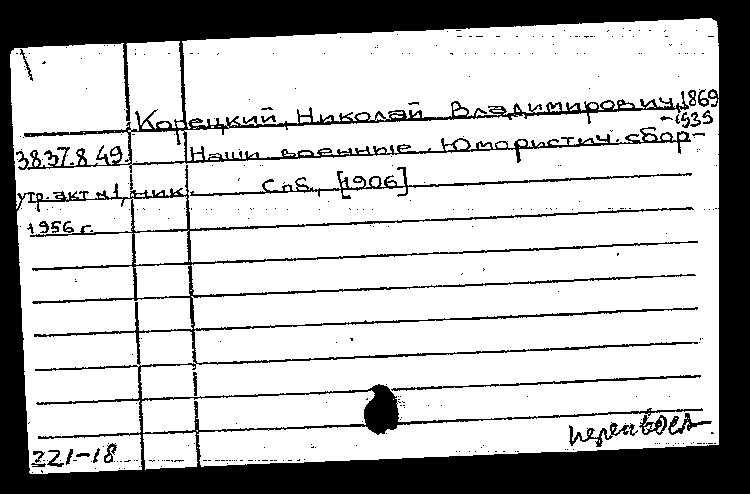 Корецкий, Николай Владимирович, 1869
-1939
38.37.8.49. Наши военные. Юмористич. сбор-
утр. акт №1, ник. Спб., [1906]
1956 г.
221-18